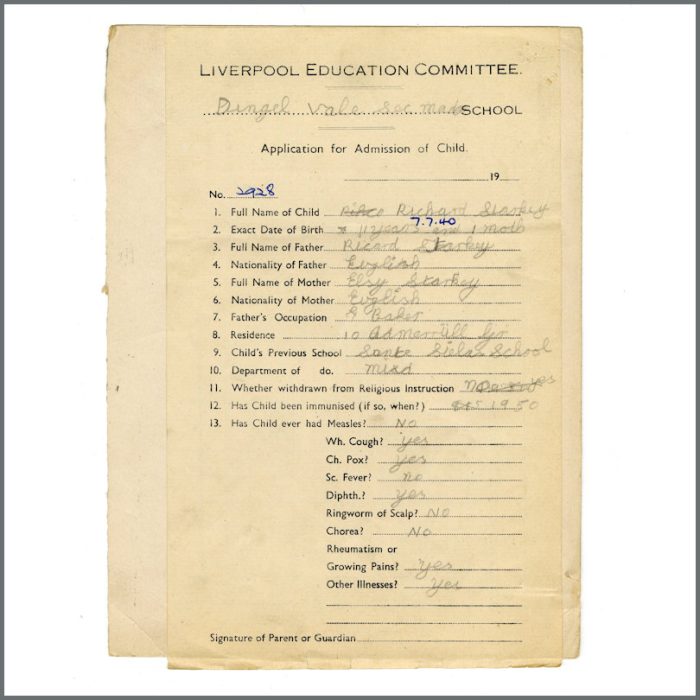 LIVERPOOL EDUCATION COMMITTEE.
Dingel Vale Sec mode SCHOOL
Application for Admission of Child.
19
No. 2928
1. Full Name of Child Richard Starkey
7.7.40
2. Exact Date of Birth 11 years and 1 moth
3. Full Name of Father Ricard Starkey
4. Nationality of Father English
5. Full Name of Mother Elsy Starkey
6. Nationality of Mother English
7. Father's Occupation Baker
8. Residence 10
9. Child's Previous School Sante Sielas School
10. Department of do. mixd
11. Whether withdrawn from Religious Instruction yes
12. Has Child been immunised (if so, when?) 1950
13. Has Child ever had Measles? No
Wh. Cough? yes
Ch. Pox? yes
Sc. Fever? no
Diphth.? yes
Ringworm of Scalp? NO
Chorea? No
Rheumatism or
Growing Pains? yes
Other Illnesses? Yes
Signature of Parent or Guardian